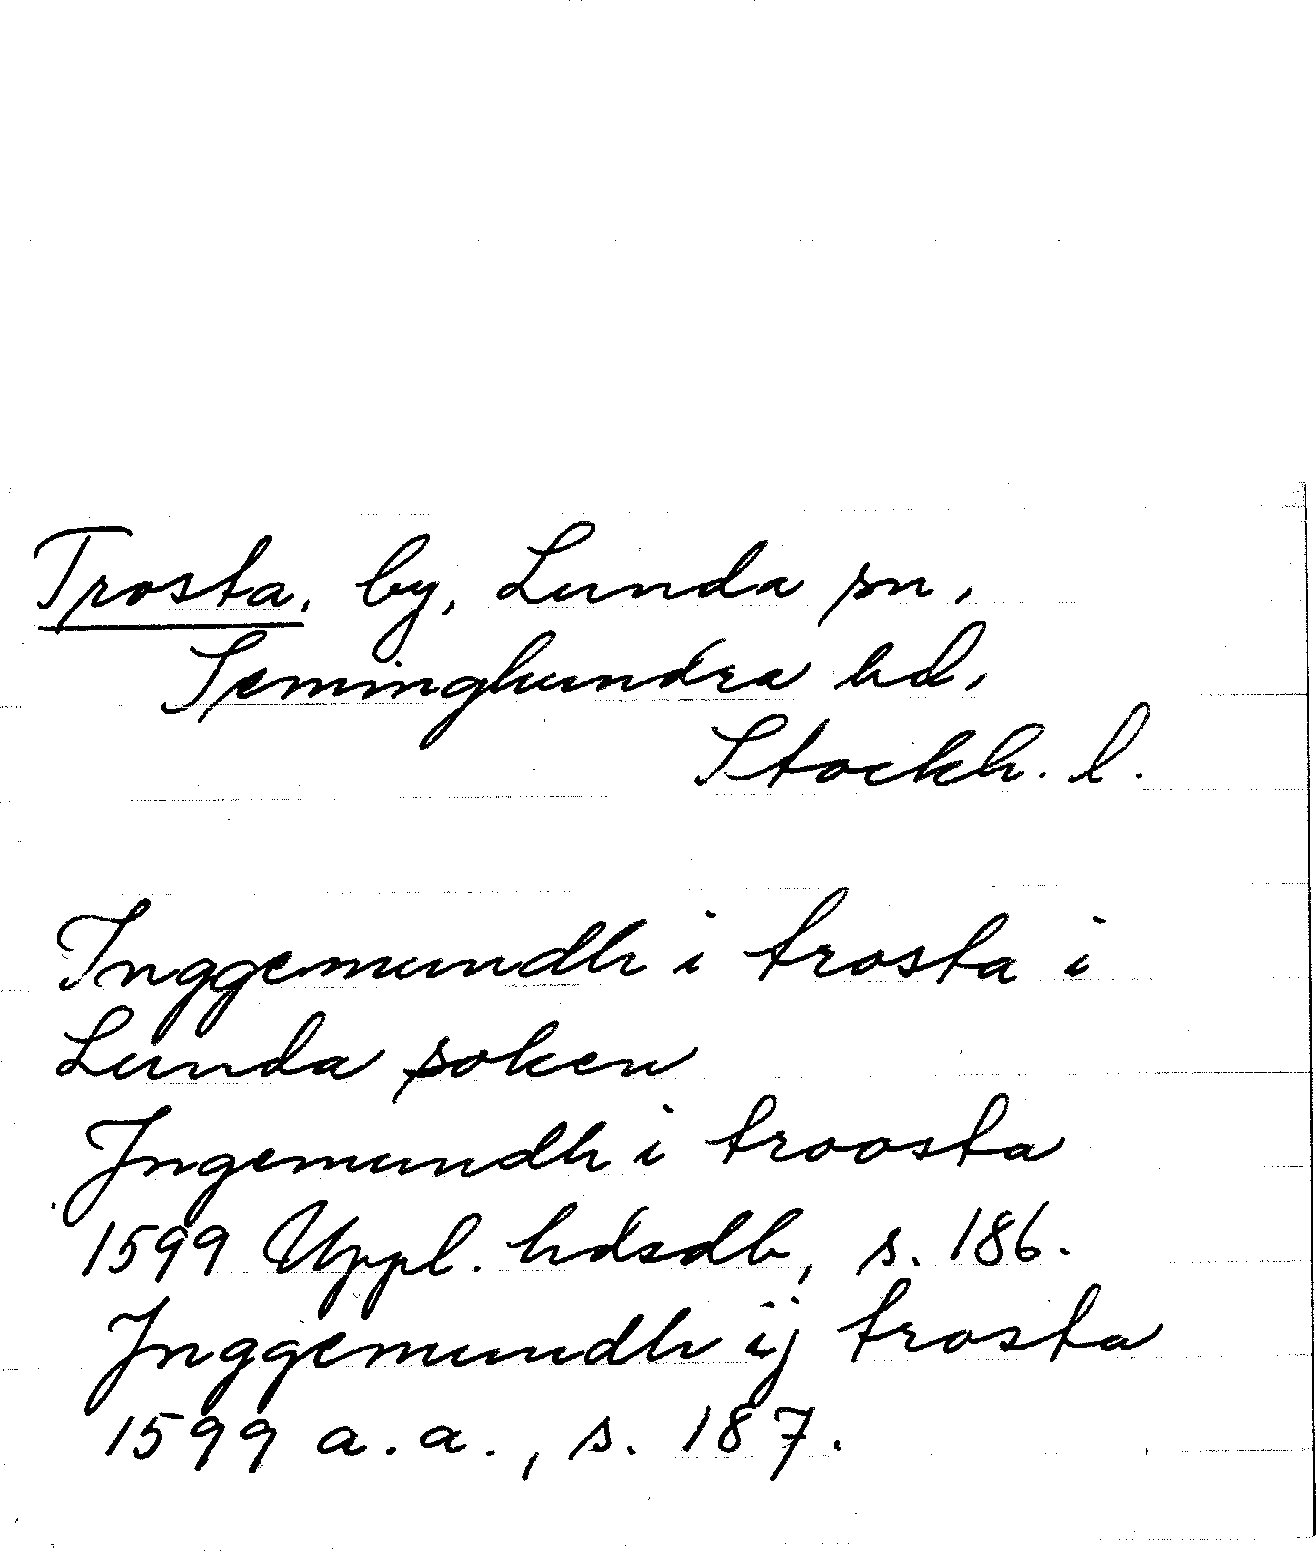 Trosta, by, Lunda sn,
Seminghundra hd,
Stockh. l.
Inggemundh i trosta i
Lunda soken
Jngemundh i troosta
1599 Uppl. hdsdb, s. 186.
Jnggemundh ij trosta
1599 a.a., s. 187.